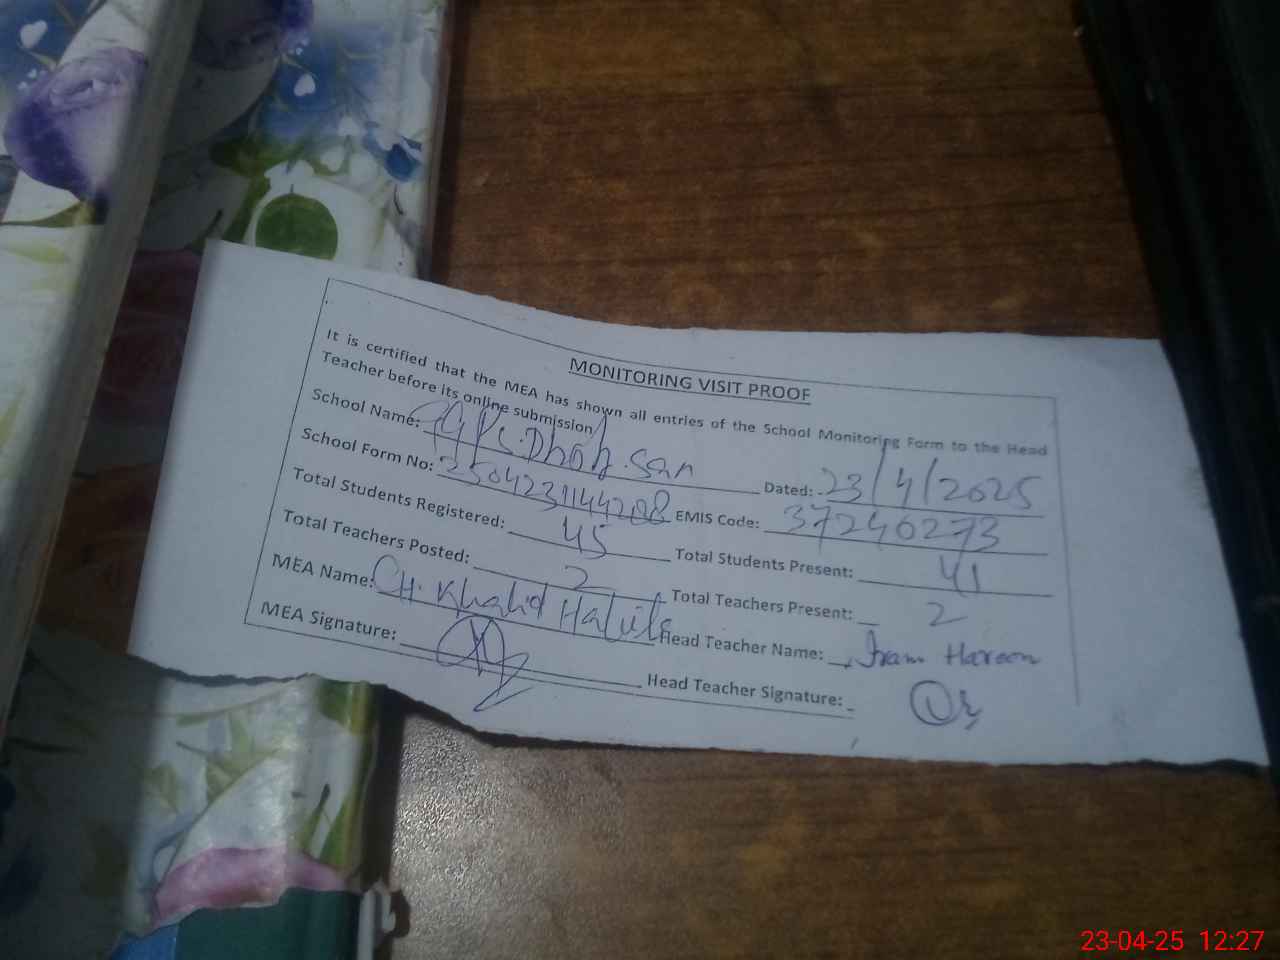 MONITORING VISIT PROOF
It is certified that the MEA has shown all entries of the School Monitoring Form to the Head
Teacher before its online submission
School Name: Dhok San Dated: 23/4/2025
School Form No: 250423114208 EMIS Code: 37240273
Total Students Registered: 45 Total Students Present: 41
Total Teachers Posted: 2 Total Teachers Present: 2
MEA Name: CH. Khalid Habib Head Teacher Name: Iram Haroon
MEA Signature: Head Teacher Signature:
23-04-25 12:27